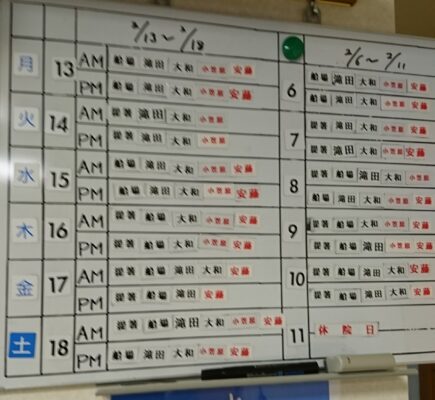 2/13～2/18
月 13 AM 船場 滝田 大和 小笠原 安藤
PM 船場 滝田 大和 小笠原 安藤
火 14 AM 提箸 滝田 小笠原
PM 提箸 滝田 大和 小笠原
水 15 AM 船場 滝田 大和 小笠原 安藤
PM 船場 滝田 大和 小笠原 安藤
木 16 AM 提箸 船場 大和 小笠原 安藤
PM 提箸 船場 大和 小笠原 安藤
金 17 AM 提箸 船場 滝田 大和 安藤
PM 提箸 船場 滝田 安藤
土 18 AM 提箸 船場 滝田 大和 小笠原 安藤
PM 船場 滝田 大和 小笠原 安藤
2/6～2/11
6 船場 滝田 大和 小笠原 安藤
船場 滝田 大和 小笠原 安藤
7 提箸 滝田 大和 小笠原 安藤
提箸 滝田 大和 小笠原 安藤
8 船場 滝田 大和 小笠原 安藤
船場 滝田 大和 小笠原 安藤
9 提箸 船場 大和 小笠原 安藤
提箸 船場 滝田 小笠原 安藤
10 提箸 船場 滝田 大和 安藤
提箸 船場 滝田 大和 安藤
11 休院日